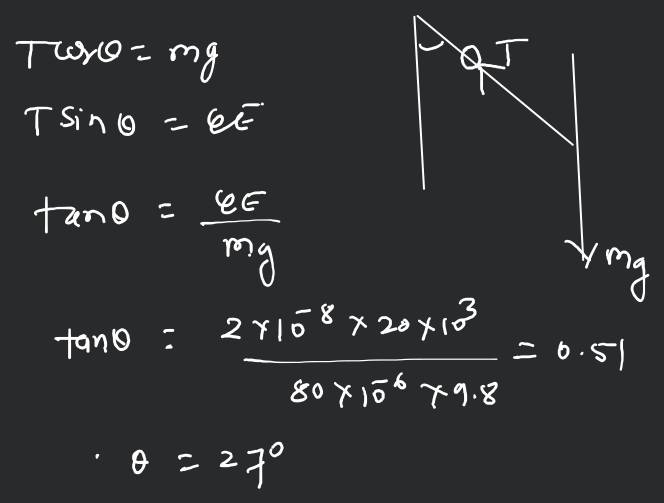 T cosθ = mg
T sinθ = qE
tanθ = qE / mg
tanθ = 2×10⁻⁸ × 20×10³ / 80×10⁻⁶ × 9.8 = 0.51
θ = 27°
θ T
mg